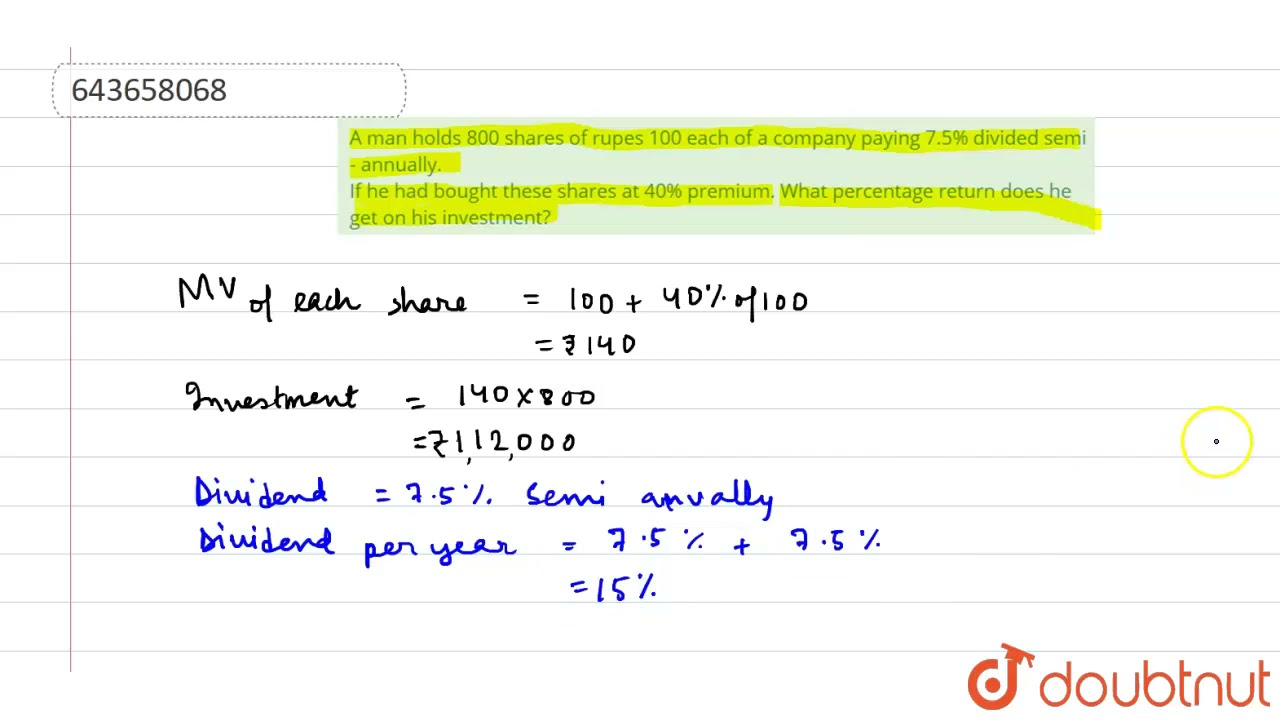 643658068
A man holds 800 shares of rupes 100 each of a company paying 7.5% divided semi
- annually.
If he had bought these shares at 40% premium. What percentage return does he
get on his investment?
MV of each share = 100 + 40% of 100
= ₹140
Investment = 140×800
=₹1,12,000
Dividend = 7.5% Semi annually
Dividend per year = 7.5% + 7.5%
=15%
doubtnut